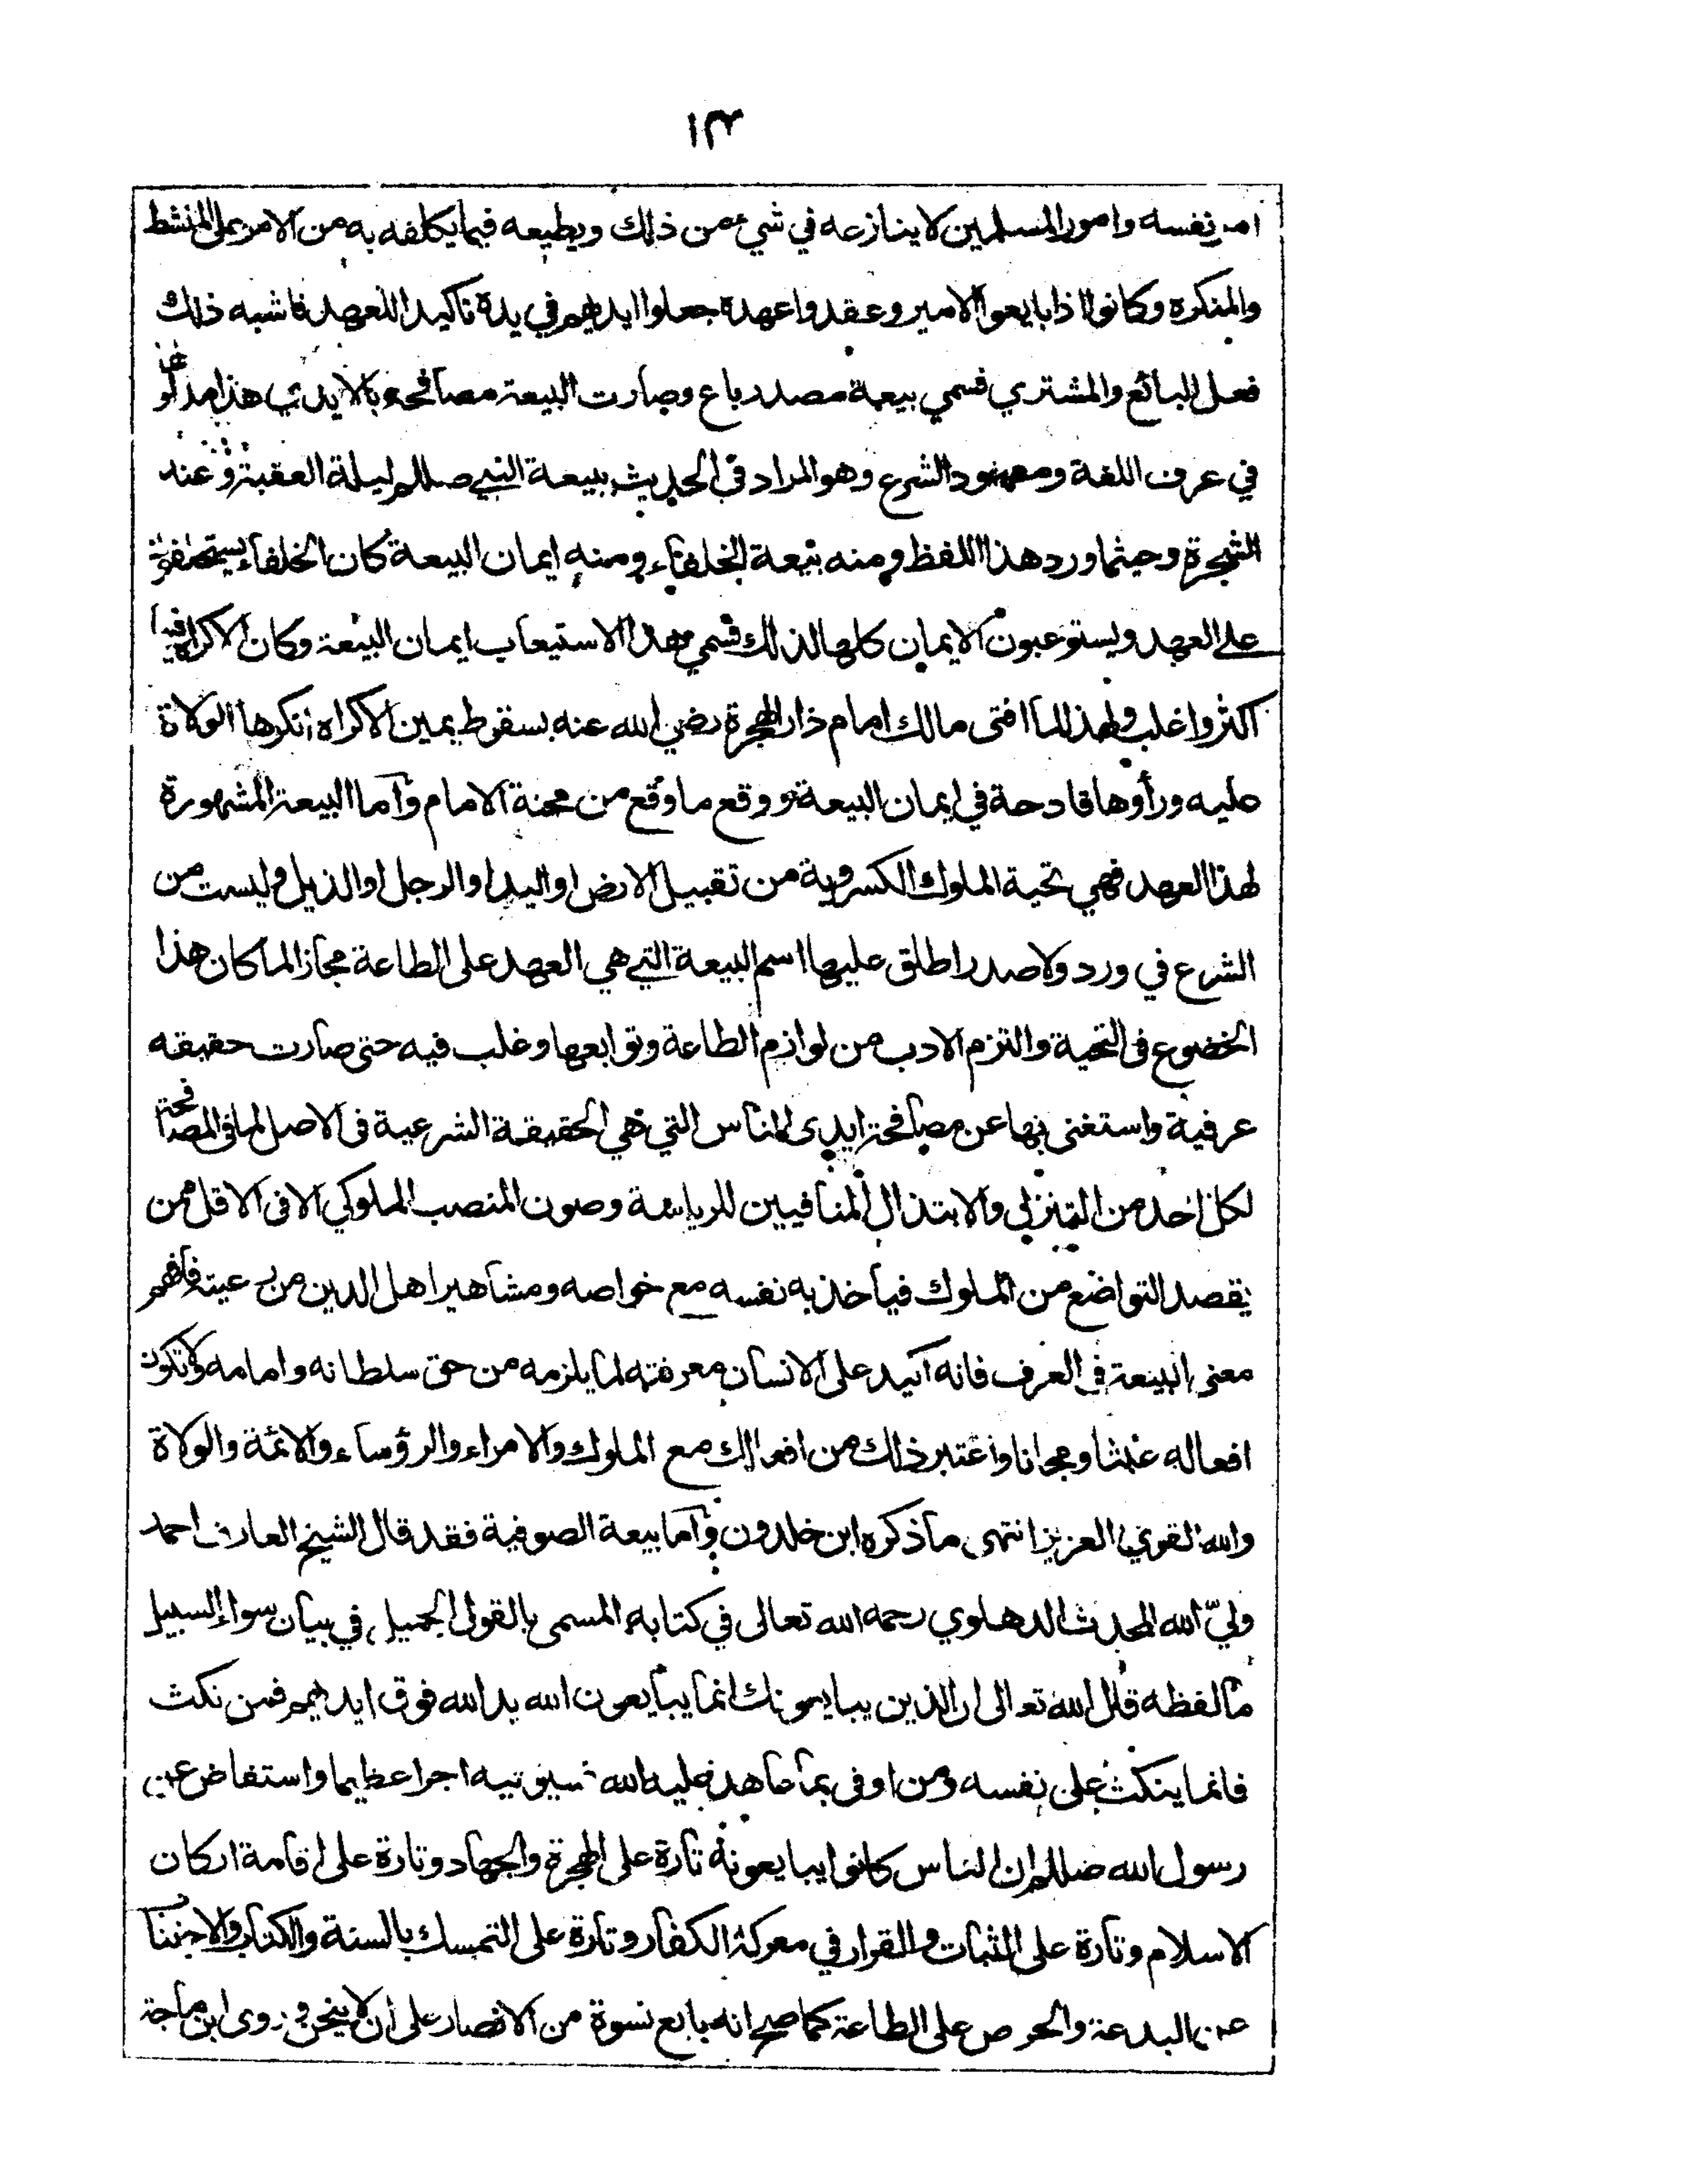 ١٣
امر نفسه وامور المسلمين لا ينازعه في شيء من ذلك ويطيعه فيما يكلفه به من الامر على المنشط
والمنكره وكانوا اذا بايعوا الامير وعقدوا عهده جعلوا ايديهم في يده تاكيدا للعهد فاشبه ذلك
فعل البائع والمشتري فسمي بيعة مصدر باع وصارت البيعة مصافحة بالايدي هذا مدلولها
في عرف اللغة ومعهود الشرع وهو المراد في الحديث ببيعة النبي صللم ليلة العقبة وعند
الشجرة وحيثما ورد هذا اللفظ ومنه بيعة الخلفاء ومنه ايمان البيعة كان الخلفاء يستحلفون
على العهد ويستوعبون الايمان كلها لذلك فسمي هذا الاستيعاب ايمان البيعة وكان الاكراه فيها
اكثر واغلب ولهذا لما افتى مالك امام دار الهجرة رضي الله عنه بسقوط يمين الاكراه انكرها الولاة
عليه ورأوها قادحة في ايمان البيعة ووقع ما وقع من محنة الامام وآما البيعة المشهورة
لهذا العهد فهي تحية الملوك الكسروية من تقبيل الارض او اليد او الرجل او الذيل وليست من
الشرع في ورد ولا صدر اطلق عليها اسم البيعة التي هي العهد على الطاعة مجازا لما كان هذا
الخضوع فى التحية والتزم الادب من لوازم الطاعة وتوابعها وغلب فيه حتى صارت حقيقه
عرفية واستغنى بها عن مصافحة ايدى الناس التي هي الحقيقة الشرعية فى الاصل لما فى المصافحة
لكل احد من التنزلي والابتذال المنافيين للرياسة وصون المنصب الملوكي الا فى الاقل ممن
يقصد التواضع من الملوك فيأخذ به نفسه مع خواصه ومشاهير اهل الدين من رعيته فافهم
معنى البيعة فى العرف فانه آكيد على الانسان معرفته لما يلزمه من حق سلطانه وامامه ولا تكون
افعاله عبثا ومجانا واعتبر ذلك من افعالك مع الملوك والامراء والرؤساء والائمة والولاة
والله القوي العزيز انتهى ما ذكره ابن خلدون وآما بيعة الصوفية فقد قال الشيخ العارف احمد
وليّ الله المحدث الدهلوي رحمه الله تعالى في كتابه المسمى بالقول الجميل في بيان سواء السبيل
ما لفظه قال الله تعالى ان الذين يبايعونك انما يبايعون الله يد الله فوق ايديهم فمن نكث
فانما ينكث على نفسه ومن اوفى بما عاهد عليه الله فسيؤتيه اجرا عظيما واستفاض عن
رسول الله صللم ان الناس كانوا يبايعونه تارة على الهجرة والجهاد وتارة على اقامة اركان
الاسلام وتارة على الثبات والقرار في معركة الكفار وتارة على التمسك بالسنة والكتاب والاجتناب
عن البدعة والحرص على الطاعة كما صح انه بايع نسوة من الانصار على أن لا ينحن وروى ابن ماجة